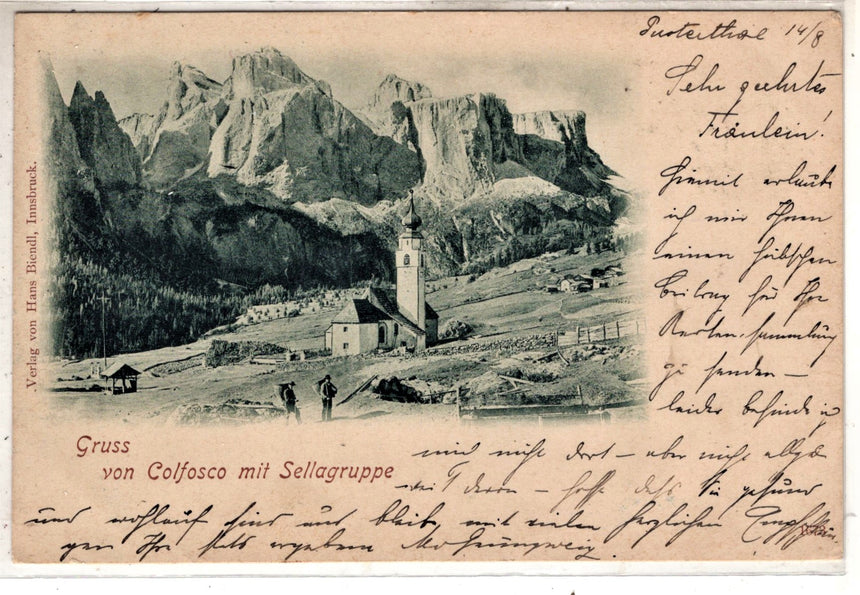 Verlag von Hans Biendl, Innsbruck.
Gruss
von Colfosco mit Sellagruppe
Pusterthal 14/8
Sehr geehrtes
Fräulein!
Hiemit erlaube
ich mir Ihnen
einen hübschen
Beitrag für Ihre
Karten-sammlung
zu senden —
leider befinde ich
mich nicht dort — aber nicht
weit davon — hoffe dass Sie gesund
und wohlauf sind und bleibe mit vielen herzlichen
Ihr stets ergebener